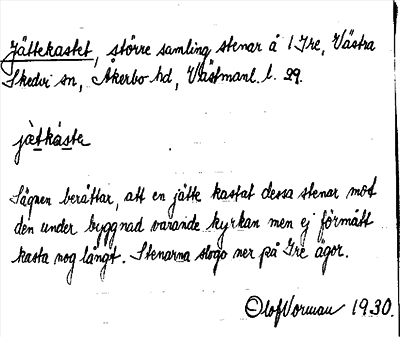 Jättekastet, större samling stenar å 1 Ire, Västra
Skedvi sn, Åkerbo hd, Västmanl. l. 29.
jætkàsta
Sägnen berättar, att en jätte kastat dessa stenar mot
den under byggnad varande kyrkan men ej förmått
kasta nog långt. Stenarna slogo ner på Ire ägor.
Olof Vorman 1930.